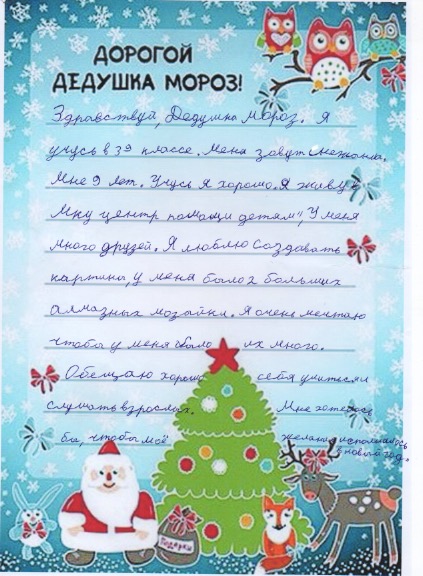 ДОРОГОЙ
ДЕДУШКА МОРОЗ!
Здравствуй, Дедушка Мороз. Я
учусь в 3э классе. Меня зовут Снежана.
Мне 9 лет. Учусь я хорошо. Я живу в
Мку центр помощи детям", У меня
много друзей. Я люблю создавать
картины, у меня было 2 больших
алмазных мозайки. Я очень мечтаю
чтобы у меня было их много.
Обещаю хорошо себя учиться и
слушать взрослых. Мне хотелось
бы, чтобы моё желание исполнилось
в новый год.
Подарки